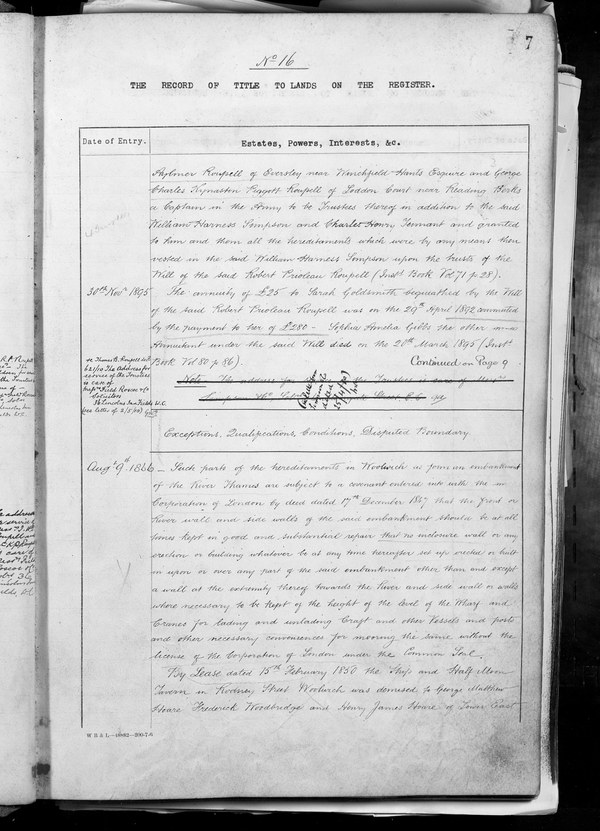 7
No 16
THE RECORD OF TITLE TO LANDS ON THE REGISTER.
Date of Entry.
Estates, Powers, Interests, &c.
Roupell of Eversley near Winchfield Hants Esquire and George
Charles Kynaston Piggott Roupell of Loddon Court near Reading Berks
a Captain in the Army to be Trustees thereof in addition to the said
William Harness Simpson and Charles Henry Tennant and granted
to him and them all the hereditaments which were by any means then
vested in the said William Harness Simpson upon the trusts of the
Will of the said Robert Prioleau Roupell (Instt Book Vol 71 p. 28).
30th Novr 1895
The annuity of £25 to Sarah Goldsmith bequeathed by the Will
of the said Robert Prioleau Roupell was on the 29th April 1892 commuted
by the payment to her of £280 - Sophia Amelia Gibbs the other
Annuitant under the said Will died on the 20th March 1895 (Instt
Book Vol 80 p 86).
Continued on Page 9
The address for
service of the Trustees
is care of
Field Roscoe & Co
Solicitors
36 Lincolns Inn Fields W.C.
(see letter of 2/5/10)
Note The address for the Trustees is care of
Exceptions, Qualifications, Conditions, Disputed Boundary.
Augst 9th 1866
Such parts of the hereditaments in Woolwich as form an embankment
of the River Thames are subject to a covenant entered into with the
Corporation of London by deed dated 17th December 1847 that the front or
River wall and side walls of the said embankment should be at all
times kept in good and substantial repair that no inclosure wall or any
erection or building whatever be at any time hereafter set up erected or built
in upon or over any part of the said embankment other than and except
a wall at the extremity thereof towards the River and side wall or walls
where necessary to be kept of the height of the level of the Wharf and
Cranes for lading and unlading Craft and other Vessels and posts
and other necessary conveniences for mooring the same without the
license of the Corporation of London under the Common Seal.
By Lease dated 15th February 1850 the Ship and Half Moon
Tavern in Rodney Street Woolwich was demised to George Matthew
Hoare Frederick Woodbridge and Henry James Hoare of Lower East
W B & L